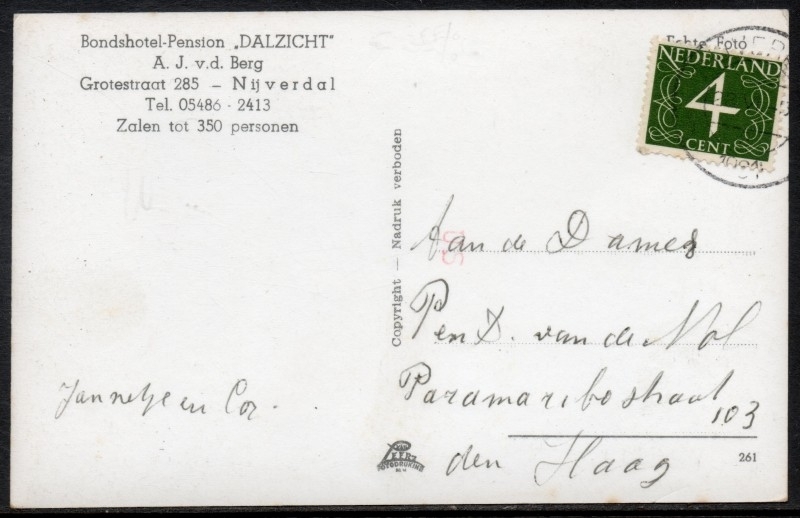 Bondshotel-Pension „DALZICHT"
A. J. v.d. Berg
Grotestraat 285 – Nijverdal
Tel. 05486 - 2413
Zalen tot 350 personen
Echte Foto
NEDERLAND
4
CENT
Copyright — Nadruk verboden
Aan de Dames
P en D. van de Mol
Paramaribostraat
103
den Haag
Jannetje en Cor.
VAN
LEER'S
FOTODRUKIND
261